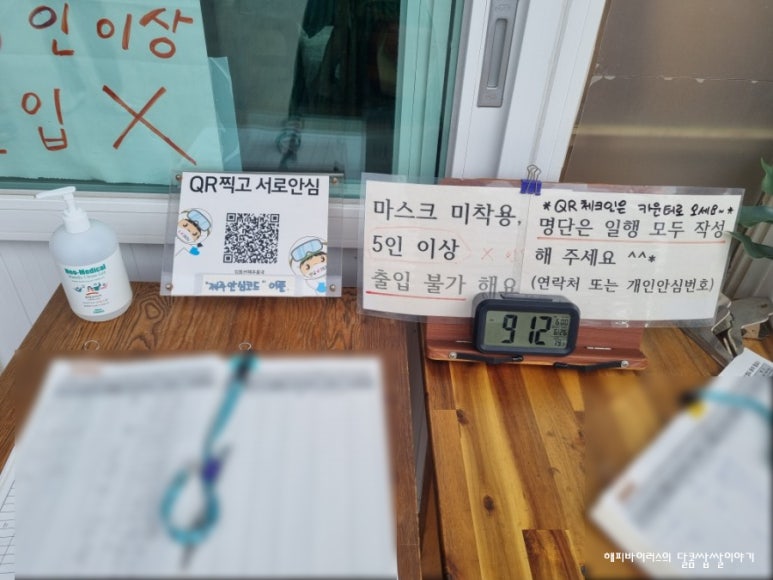 인이상
입 X
QR찍고 서로안심
"제주안심코드" 이용
Neo-Medical
마스크 미착용,
5인 이상
출입 불가 해요
*QR 체크인은 카운터로 오세요~*
명단은 일행 모두 작성
해 주세요 ^^*
(연락처 또는 개인안심번호)
912
해피바이러스의 달콤쌉쌀이야기